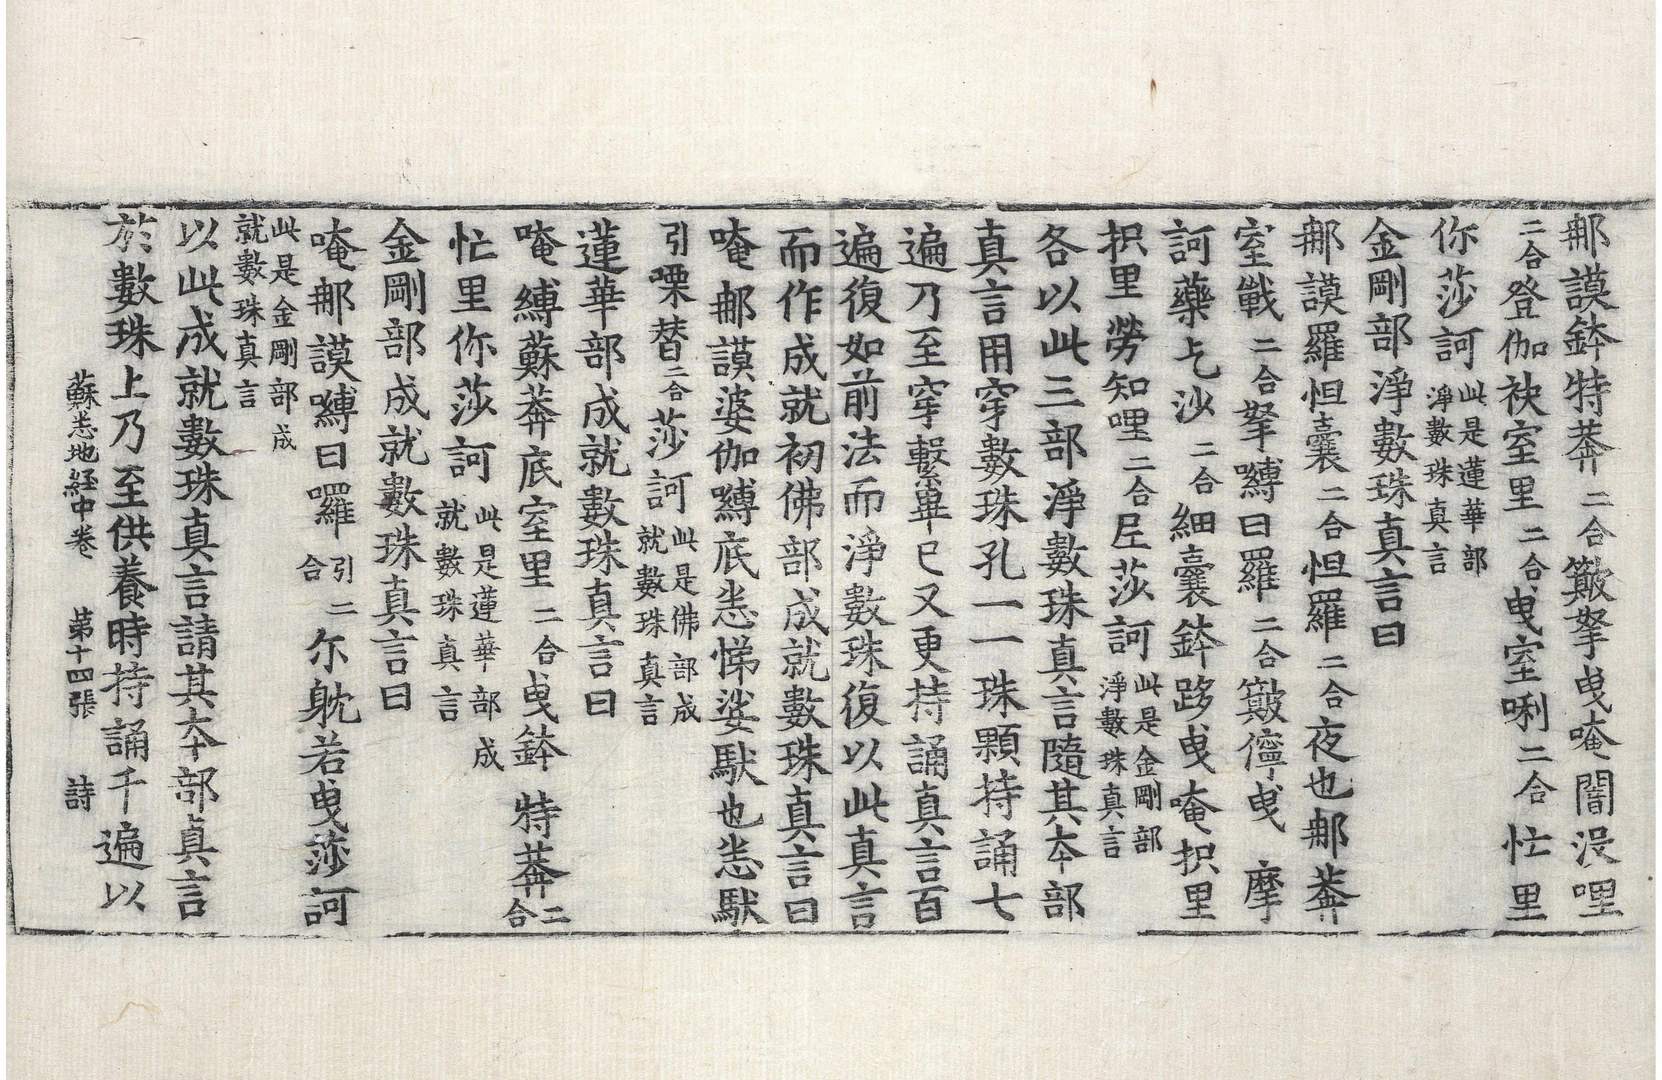 那謨鉢特莽二合簸拏曳唵闇没哩
二合登伽袂室里二合曳室唎二合忙里
你莎訶此是蓮華部淨數珠真言
金剛部淨數珠真言曰
那謨羅怛囊二合怛羅二合夜也那莽
室戰二合拏嚩曰羅二合簸儜曳摩
訶藥乞沙二合細囊鉢跢曳唵枳里
枳里勞知哩二合㞐莎訶此是金剛部淨數珠真言
各以此三部淨數珠真言隨其本部
真言用穿數珠孔一一珠顆持誦七
遍乃至穿繫畢已又更持誦真言百
遍復如前法而淨數珠復以此真言
而作成就初佛部成就數珠真言曰
唵那謨婆伽嚩底悉悌娑䭾也悉䭾
引㗚替二合莎訶此是佛部成就數珠真言
蓮華部成就數珠真言曰
唵嚩蘇莽底室里二合曳鉢特莽二合
忙里你莎訶此是蓮華部成就數珠真言
金剛部成就數珠真言曰
唵那謨嚩曰囉引二合尒躭若曳莎訶
此是金剛部成就數珠真言
以此成就數珠真言請其本部真言
於數珠上乃至供養時持誦千遍以
蘇悉地経中卷 第十四張 詩